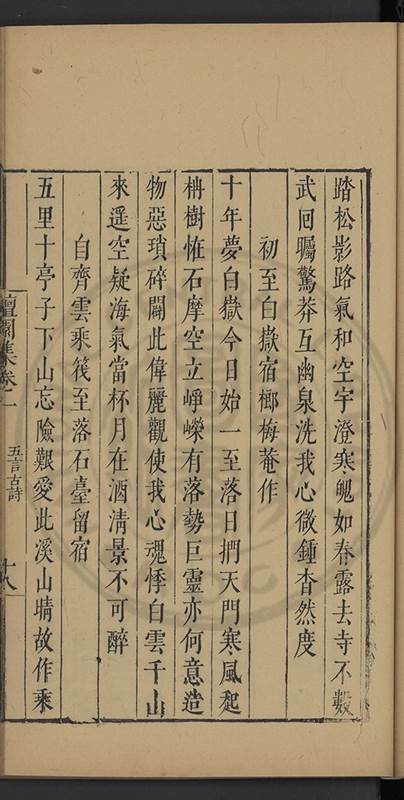 踏松影路氣和空宇澄寒魄如春露去寺不數
武回矚驚莽互幽泉洗我心微鍾杳然度
初至白嶽宿榔梅菴作
十年夢白嶽今日始一至落日捫天門寒風起
柟樹怪石摩空立崢嶸有落勢巨靈亦何意造
物惡瑣碎闢此偉麗觀使我心魂悸白雲千山
來遥空疑海氣當杯月在酒清景不可醉
自齊雲乘筏至落石臺留宿
五里十亭子下山忘險艱愛此溪山晴故作乘
集卷一
五言古詩
十八